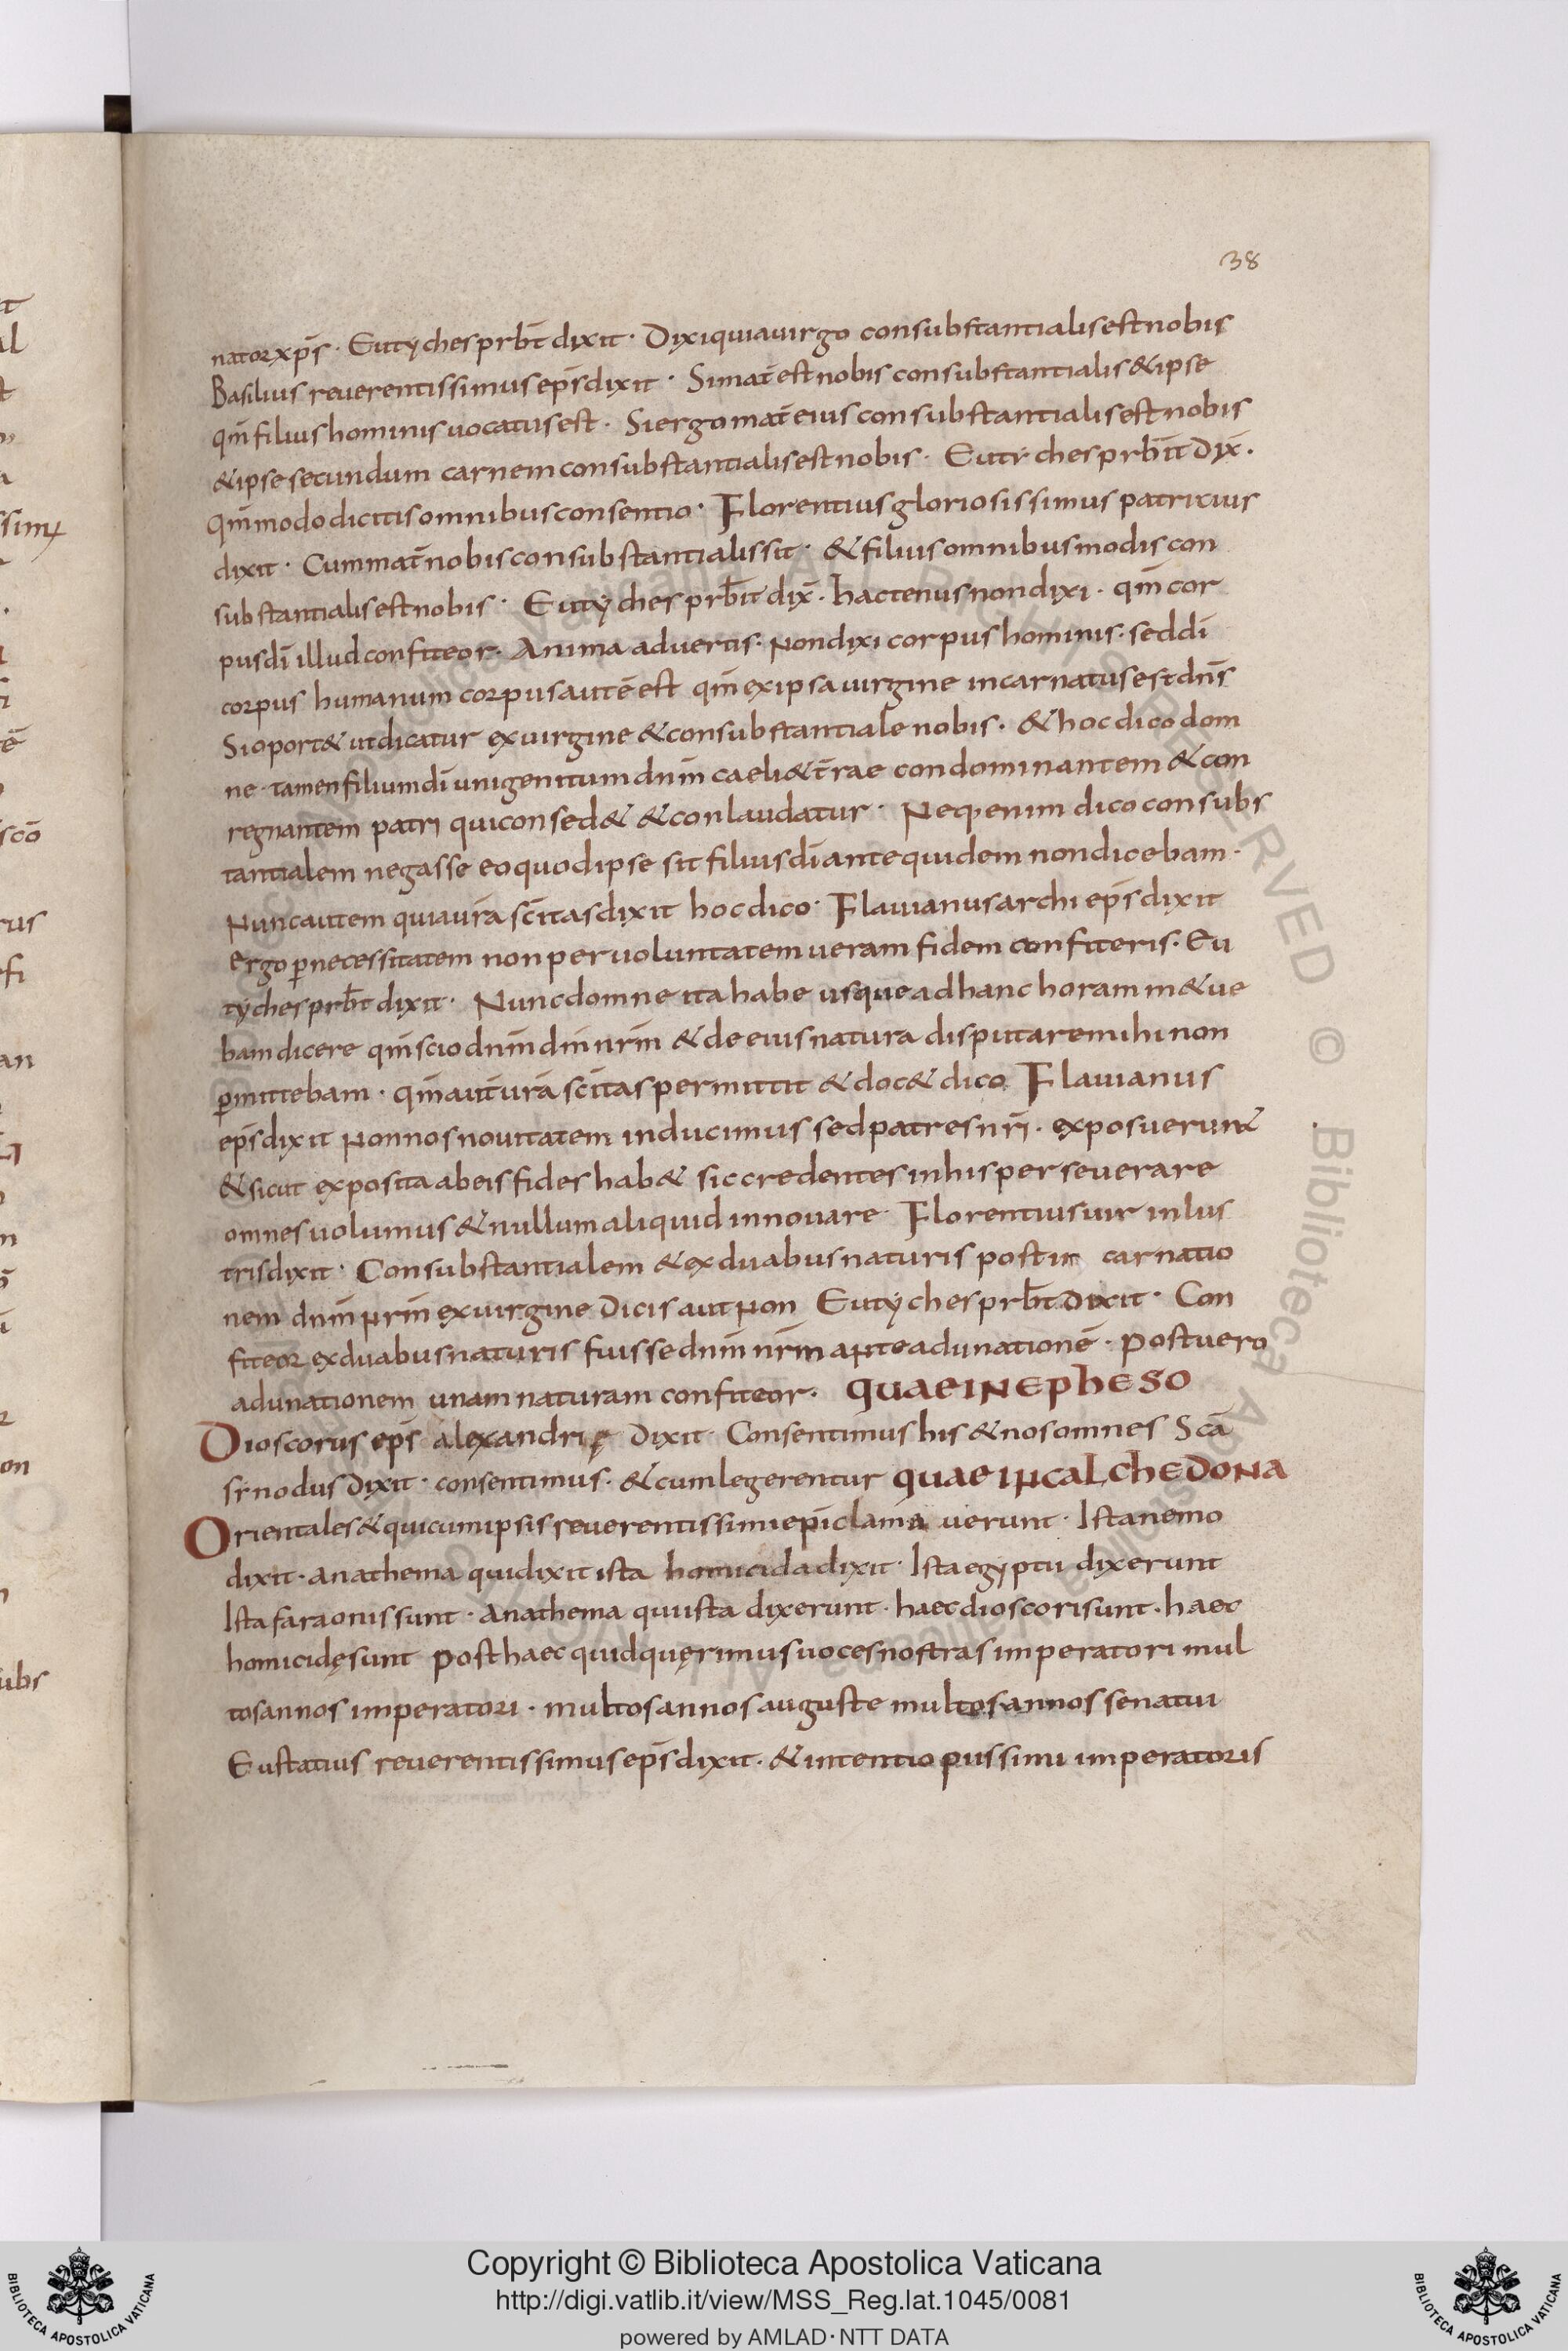 38
nator xp̄s · Eutyches prb̄t dixit · Dixi quia uirgo consubstantialis est nobis
Basilius reuerentissimus ep̄s dixit · Si mat̄ est nobis consubstantialis & ipse
qm̄ filius hominis uocatus est · Si ergo mat̄ eius consubstantialis est nobis
& ipse secundum carnem consubstantialis est nobis · Eutyches prb̄it dix̄ ·
Qm̄modo dicitis omnibus consentio · Florentius gloriosissimus patricius
dixit · Cum mat̄ nobis consubstantialis sit · & filius omnibus modis con
substantialis est nobis · Eutyches prb̄it dix̄ · hactenus non dixi · qm̄ cor
pus dī illud confiteor · Anima aduertis · Non dixi corpus hominis · sed dī
corpus humanum corpus autē est qm̄ ex ipsa uirgine incarnatus est dn̄s
Si oport& ut dicatur ex uirgine & consubstantiale nobis · & hoc dico dom
ne · tamen filium dī unigenitum dnm̄ caeli & t̄rae condominantem & con
regnantem patri qui consed& & conlaudatur · Neq; enim dico consubs
tantialem negasse eo quod ipse sit filius dī ante quidem non dicebam ·
Nunc autem quia ur̄a sc̄itas dixit hoc dico · Flauianus archi ep̄s dixit
ergo ꝑ necessitatem non per uoluntatem ueram fidem confiteris · Eu
tyches prb̄t dixit · Nunc domne ita habe usque ad hanc horam m&ue
bam dicere qm̄ scio dnm̄ dm̄ nrm̄ & de eius natura disputare mihi non
ꝑmittebam · qm̄ aut̄ ur̄a sc̄itas permittit & doc& dico Flauianus
ep̄s dixit Non nos nouitatem inducimus sed patres nr̄i · exposuerunt
& sicut exposita ab eis fides hab& sic credentes in his perseuerare
omnes uolumus & nullum aliquid innouare · Florentius uir inlus
tris dixit · Consubstantialem & ex duabus naturis post in carnatio
nem dnm̄ nrm̄ ex uirgine dicis aut non Eutyches prb̄t dixit · Con
fiteor ex duabus naturis fuisse dnm̄ nrm̄ ante adunationē · post uero
adunationem unam naturam confiteor · QUAE IN EPHESO
Dioscorus ep̄s alexandrię dixit · Consentimus his & nos omnes Sc̄a
synodus dixit · consentimus · & cum legerentur QUAE IN CALCHEDONA
Orientales & qui cum ipsis reuerentissimi epī clama uerunt · Ista nemo
dixit · anathema qui dixit ista homicida dixit · Ista egyptii dixerunt
Ista faraonis sunt · anathema qui ista dixerunt · haec dioscori sunt · haec
homicidę sunt post haec quid quęrimus uoces nostras imperatori mul
tos annos imperatori · multos annos auguste multos annos senatui
Eustatius reuerentissimus ep̄s dixit · & intentio piissimi imperatoris
Copyright © Biblioteca Apostolica Vaticana
http://digi.vatlib.it/view/MSS_Reg.lat.1045/0081
powered by AMLAD·NTT DATA
BIBLIOTECA APOSTOLICA VATICANA
BIBLIOTECA APOSTOLICA VATICANA